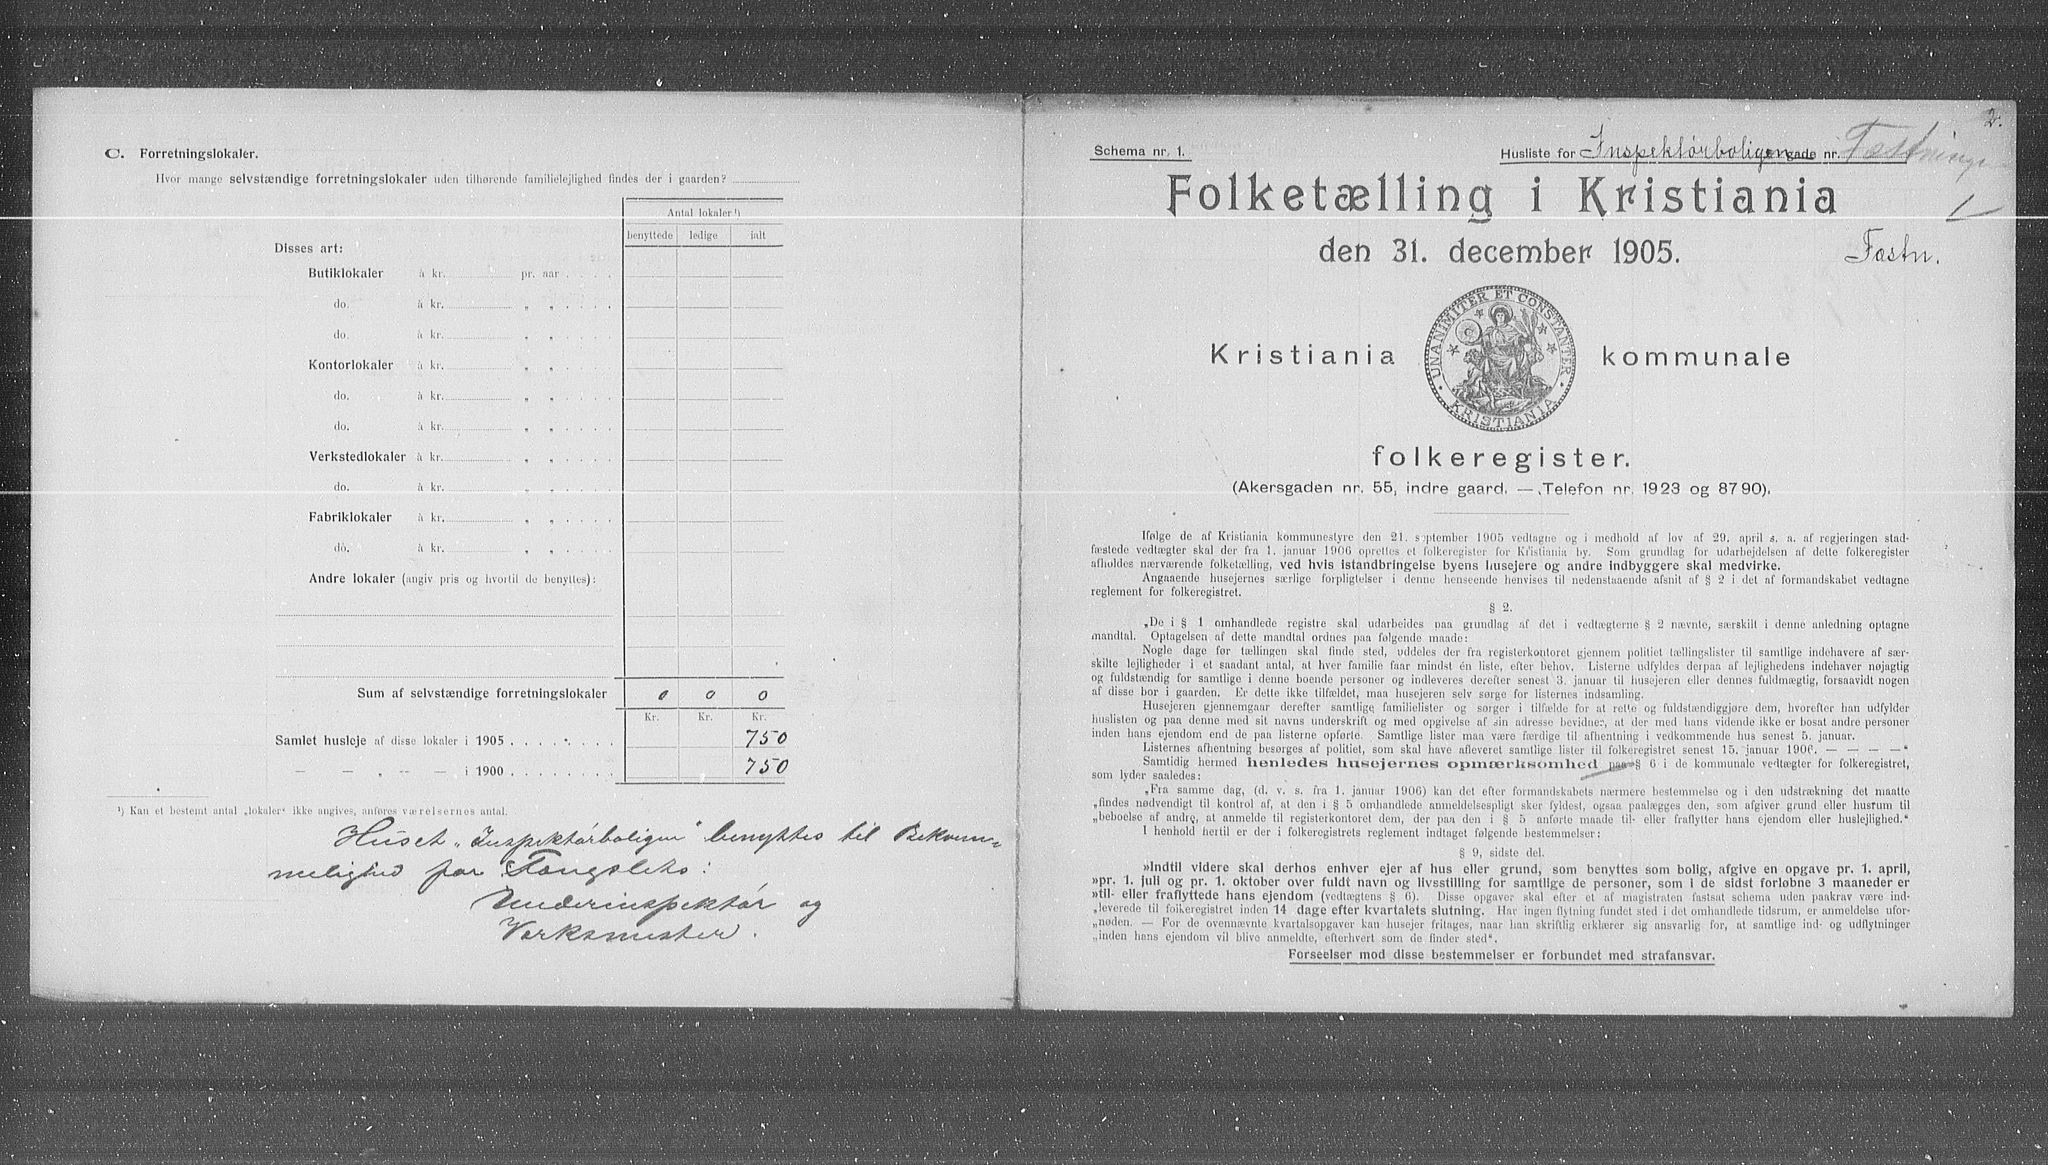 C. Forretningslokaler.
Hvor mange selvstændige forretningslokaler uden tilhørende familielejlighed findes der i gaarden?
Antal lokaler ¹)
benyttede ledige ialt
Disses art:
Butiklokaler à kr. pr. aar
do. à kr. „ „
do. à kr. „ „
Kontorlokaler à kr. „ „
do. à kr. „ „
do. à kr. „ „
Verkstedlokaler à kr. „ „
do. à kr. „ „
Fabriklokaler à kr. „ „
do. à kr. „ „
Andre lokaler (angiv pris og hvortil de benyttes):
Sum af selvstændige forretningslokaler 0 0 0
Kr. Kr. Kr.
Samlet husleje af disse lokaler i 1905 750
— — „ — — i 1900 750
¹) Kan et bestemt antal „lokaler“ ikke angives, anføres værelsernes antal.
Huset „Inspektørboligen“ benyttes til Bekvem-
melighed for Fængslets:
Underinspektør og
Verksmester.
2.
Schema nr. 1.
Husliste for Inspektørboligen gade nr. Fæstningen
Folketælling i Kristiania
1
den 31. december 1905.
Fæstn.
UNANIMITER ET CONSTANTER
KRISTIANIA
Kristiania kommunale
folkeregister.
(Akersgaden nr. 55, indre gaard. — Telefon nr. 1923 og 8790).
Ifølge de af Kristiania kommunestyre den 21. september 1905 vedtagne og i medhold af lov af 29. april s. a. af regjeringen stad-
fæstede vedtægter skal der fra 1. januar 1906 oprettes et folkeregister for Kristiania by. Som grundlag for udarbejdelsen af dette folkeregister
afholdes nærværende folketælling, ved hvis istandbringelse byens husejere og andre indbyggere skal medvirke.
Angaaende husejernes særlige forpligtelser i denne henseende henvises til nedenstaaende afsnit af § 2 i det af formandskabet vedtagne
reglement for folkeregistret.
§ 2.
„De i § 1 omhandlede registre skal udarbeides paa grundlag af det i vedtægterne § 2 nævnte, særskilt i denne anledning optagne
mandtal. Optagelsen af dette mandtal ordnes paa følgende maade:
Nogle dage før tællingen skal finde sted, uddeles der fra registerkontoret gjennem politiet tællingslister til samtlige indehavere af sær-
skilte lejligheder i et saadant antal, at hver familie faar mindst én liste, efter behov. Listerne udfyldes derpaa af lejlighedens indehaver nøjagtig
og fuldstændig for samtlige i denne boende personer og indleveres derefter senest 3. januar til husejeren eller dennes fuldmægtig, forsaavidt nogen
af disse bor i gaarden. Er dette ikke tilfældet, maa husejeren selv sørge for listernes indsamling.
Husejeren gjennemgaar derefter samtlige familielister og sørger i tilfælde for at rette og fuldstændiggjøre dem, hvorefter han udfylder
huslisten og paa denne med sit navns underskrift og med opgivelse af sin adresse bevidner, at der med hans vidende ikke er bosat andre personer
inden hans ejendom end de paa listerne opførte. Samtlige lister maa være færdige til afhentning i vedkommende hus senest 5. januar.
Listernes afhentning besørges af politiet, som skal have afleveret samtlige lister til folkeregistret senest 15. januar 1906. — — — —“
Samtidig hermed henledes husejernes opmærksomhed paa § 6 i de kommunale vedtægter for folkeregistret,
som lyder saaledes:
„Fra samme dag, (d. v. s. fra 1. januar 1906) kan det efter formandskabets nærmere bestemmelse og i den udstrækning det maatte
„findes nødvendigt til kontrol af, at den i § 5 omhandlede anmeldelsespligt sker fyldest, ogsaa paalægges den, som afgiver grund eller husrum til
„beboelse af andre, at anmelde til registerkontoret dem, der paa den i § 5 anførte maade til- eller fraflytter hans ejendom eller huslejlighed.“
I henhold hertil er der i folkeregistrets reglement indtaget følgende bestemmelser:
§ 9, sidste del.
»Indtil videre skal derhos enhver ejer af hus eller grund, som benyttes som bolig, afgive en opgave pr. 1. april,
»pr. 1. juli og pr. 1. oktober over fuldt navn og livsstilling for samtlige de personer, som i de sidst forløbne 3 maaneder er
»til- eller fraflyttede hans ejendom (vedtægtens § 6). Disse opgaver skal efter et af magistraten fastsat schema uden paakrav være ind-
„leverede til folkeregistret inden 14 dage efter kvartalets slutning. Har ingen flytning fundet sted i det omhandlede tidsrum, er anmeldelse ufor-
„nøden. — For de ovennævnte kvartalsopgaver kan husejer fritages, naar han skriftlig erklærer sig ansvarlig for, at samtlige ind- og udflytninger
„inden hans ejendom vil blive anmeldte, efterhvert som de finder sted“.
Forseelser mod disse bestemmelser er forbundet med strafansvar.